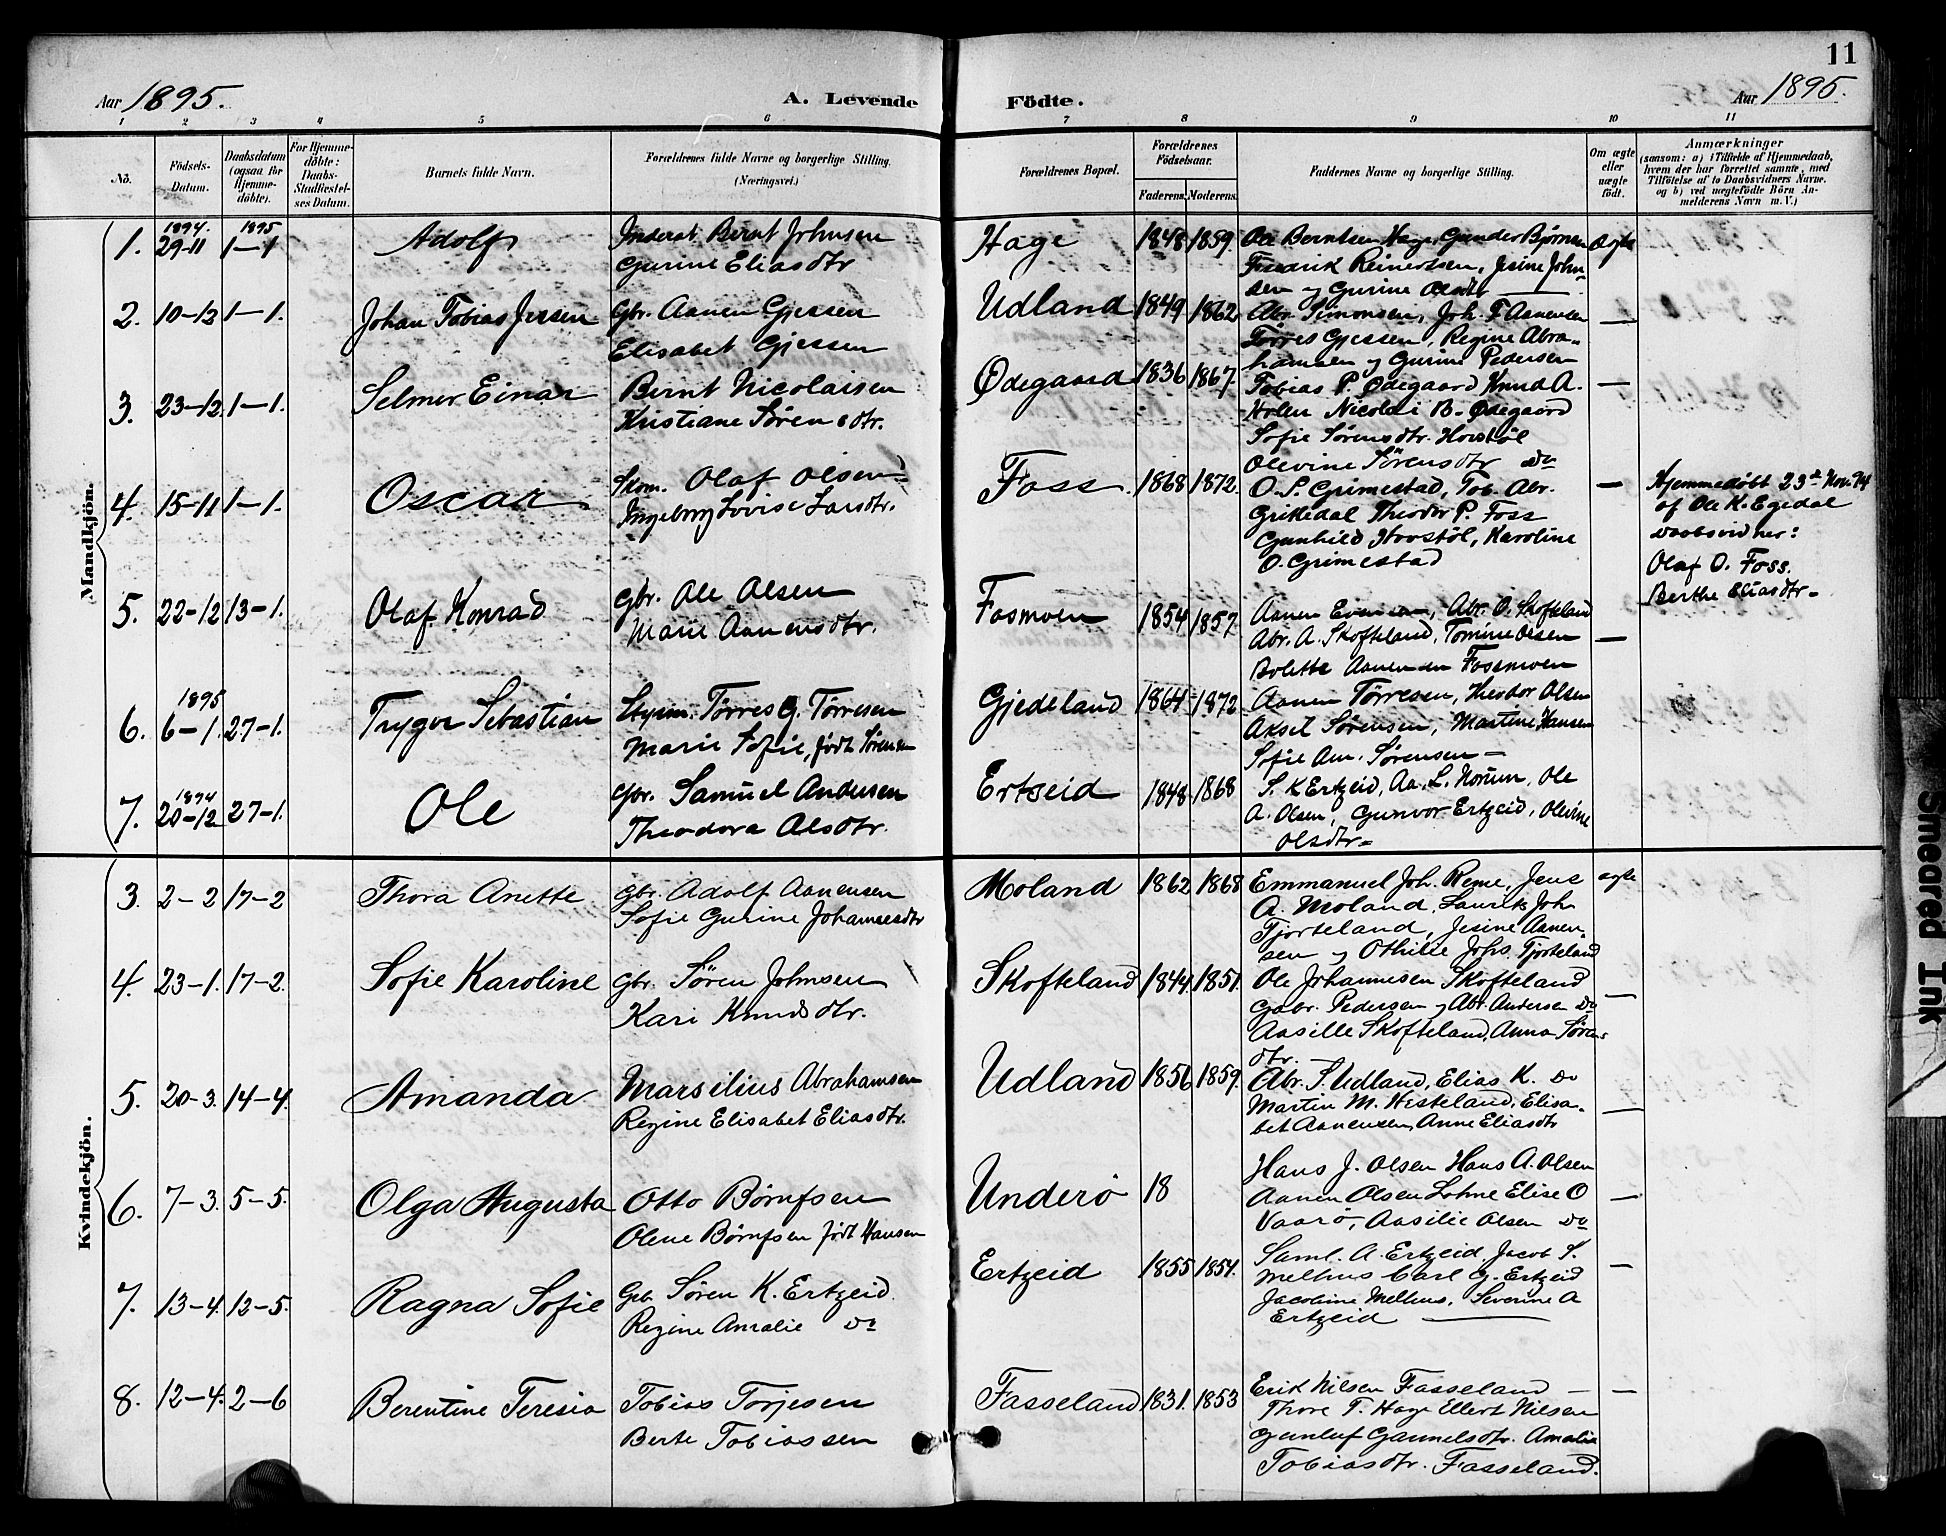 11
Aar 1895.
A. Levende Födte.
Aar 1895.
1 2 3 4 5 6 7 8 9 10 11
No.
Födsels-Datum.
Daabsdatum (ogsaa for Hjemme-döbte).
For Hjemme-döbte: Daabs-Stadfæstel-ses Datum.
Barnets fulde Navn.
Forældrenes fulde Navne og borgerlige Stilling. (Næringsvei.)
Forældrenes Bopæl.
Forældrenes Födselsaar.
Faderens. Moderens.
Faddernes Navne og borgerlige Stilling.
Om ægte eller uægte födt.
Anmærkninger
(saasom: a) i Tilfælde af Hjemmedaab,
hvem der har forrettet samme, med
Tilföielse af to Daabsvidners Navne,
og b) ved uægtefödte Börn An-
melderens Navn m. V.)
Mandkjön.
1. 1894 29-11 1895 1-1 Adolf
Inderst Bernt Johnsen
Gurine Eliasdtr
Hage 1848 1859.
Ole Berntsen Hage, Gunder Bjørnsen
Fredrik Reinertsen, Jesine John-
sen og Gurine Olsdtr
Ægte
2. 10-12 1-1. Johan Tobias Jessen
Gbr. Aanen Gjessen
Elisabet Gjessen
Udland 1849 1862
Abr. Simonsen, Joh. T Aanensen
Tørres Gjessen, Regine Abra-
hamsen og Gurine Pedersen
—
3. 23-12 1-1. Selmer Einar
Bernt Nicolaisen
Kristiane Sørensdtr.
Ødegaard 1836 1867.
Tobias P. Ødegaard Knud A.
Holen Nicolai B. Ødegaard
Sofie Sørensdtr. Hovstøl
Olevine Sørensdtr do
—
4. 15-11 1-1. Oscar
Skom. Olaf Olsen
Ingeborg Lovise Larsdtr.
Foss. 1868 1872.
O. S. Grimestad, Tob. Abr.
Grikedal Theodor P. Foss
Gunhild Hovstøl, Karoline
O. Grimestad
—
Hjemmedøbt 23de Nov. 94
af Ole K. Egedal
Daabsvidner:
Olaf O. Foss.
Berthe Eliasdtr.
5. 22-12 13-1. Olaf Konrad
Gbr. Ole Olsen
Marie Aanensdtr.
Fosmoen 1854 1857.
Aanen Evensen, Abr. O. Skofteland
Abr. A. Skofteland, Tomine Olsen
Bolette Aanensen Fossmoen
—
6. 1895 6-1. 27-1. Trygve Sebastian
Styrm. Tørres G. Tørresen
Marie Sofie, født Sørensen
Gjedeland 1864 1872
Aanen Tørresen, Theodor Olsen
Aksel Sørensen, Martine Hansen
Sofie Am. Sørensen —
7. 1894 20-12 27-1. Ole
Gbr. Samuel Andersen
Theodora Olsdtr.
Ertzeid 1848 1868
S. K Ertzeid, Aa. L. Norum, Ole
A. Olsen, Gunvor Ertzeid, Olevine
Olsdtr.
Kvindekjön.
3. 2-2 17-2 Thora Anette
Gbr. Adolf Aanensen
Sofie Gurine Johannesdtr
Moland 1862 1868
Emmanuel Joh. Reme, Jens
A. Moland, Laurits Joh.
Tjorteland, Jesine Aanen-
sen og Othilie Johs. Tjorteland
ægte
4. 23-1. 17-2. Sofie Karoline
Gbr. Søren Johnsen
Kari Knudsdtr.
Skofteland 1844 1851.
Ole Johannesen Skofteland
Gabr. Pedersen og Abr. Andersen do
Aasille Skofteland, Anna Sørens
dtr.
—
5. 20-3. 14-4. Amanda
Marsilius Abrahamsen
Regine Elisabet Eliasdtr.
Udland 1856 1859.
Abr. S. Udland, Elias K. do
Martin M. Hesteland, Elisa-
bet Aanensen, Anne Eliasdtr
—
6. 7-3. 5-5. Olga Augusta
Otto Børufsen
Olene Børufsen født Hansen
Underø 18
Hans J. Olsen Hans A. Olsen
Aanen Olsen Lohne Elise O
Vaarø, Aasilie Olsen do
—
7. 13-4. 12-5. Ragna Sofie
Gb. Søren K. Ertzeid
Regine Amalie do
Ertzeid 1855 1854.
Saml. A. Ertzeid, Jacob S.
Melhus Carl G. Ertzeid
Jacobine Melhus, Severine A
Ertzeid
—
8. 12-4. 2-6 Berentine Teresia
Tobias Torjesen
Berte Tobiassen
Fasseland 1831. 1853
Erik Nilsen Fasseland —
Thore T. Hage Ellert Nilsen
Gunluf Gamnelsdtr. Amalia
Tobiasdtr. Fasseland.
—
Smeared Ink